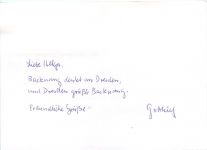 Liebe Helga,
Backnang denkt an Dresden,
und Dresden grüßt Backnang.
Freundliche Grüße -